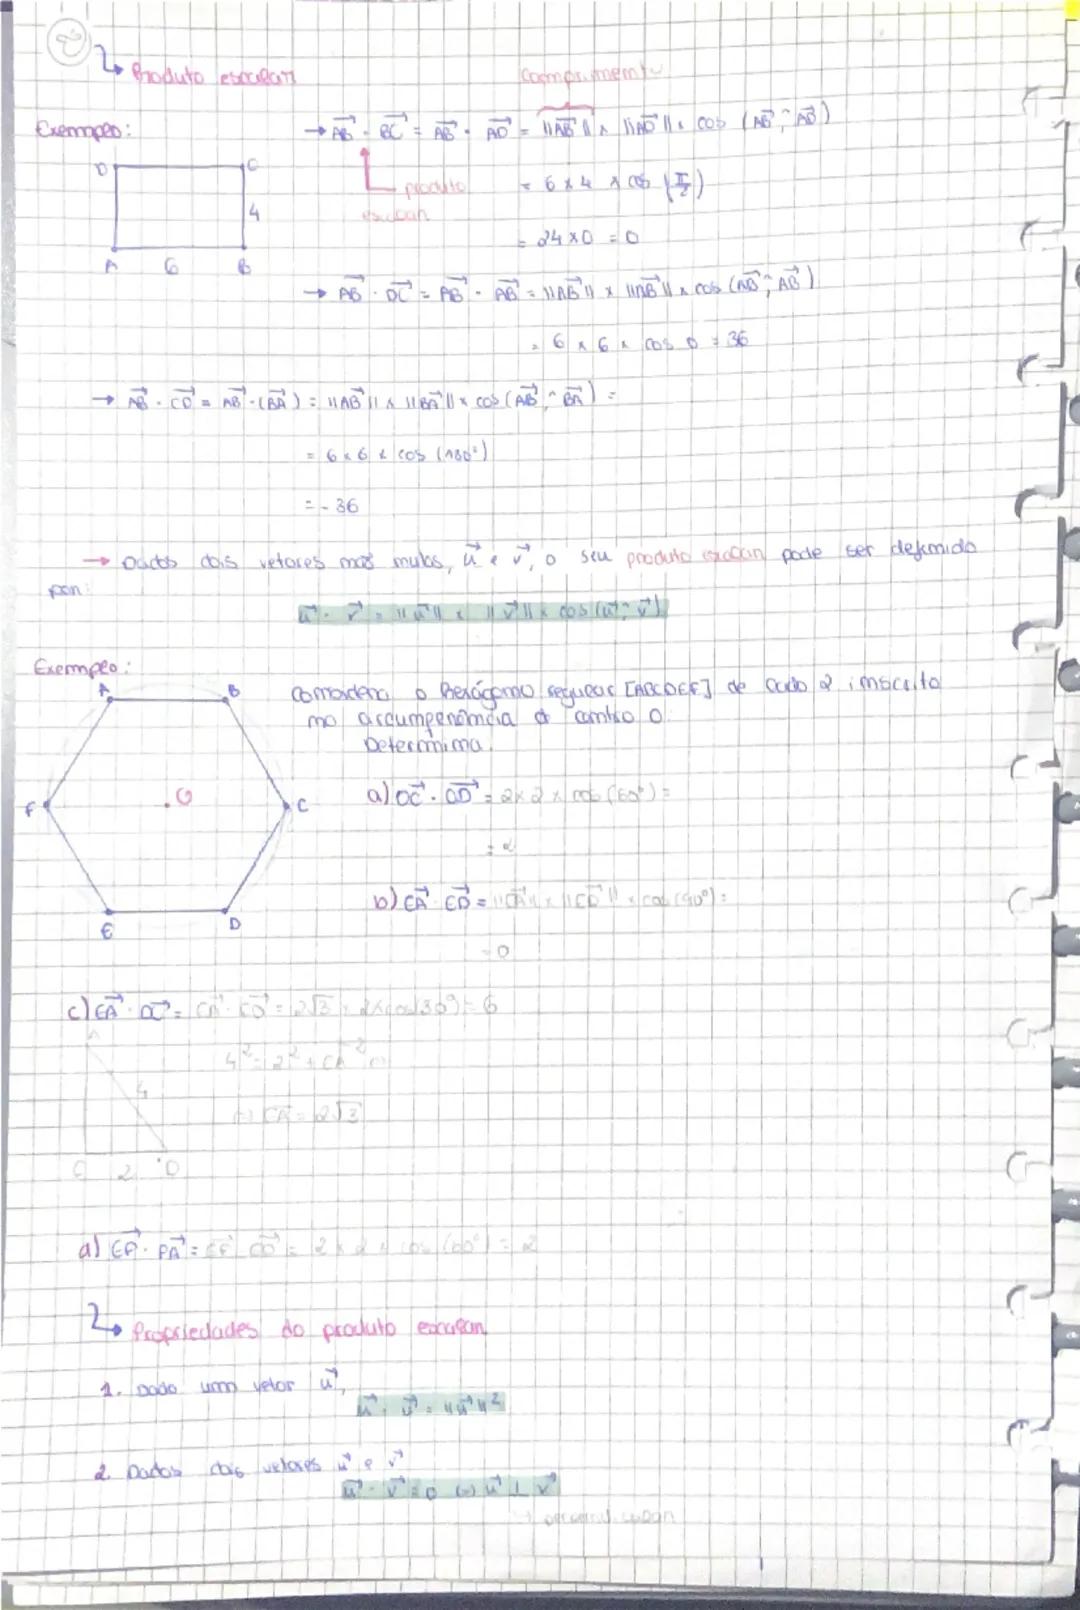 2
↳ Produto escalar
comprimento
Exemplo:
→ AB⃗ · BC⃗ = AB⃗ · AD⃗ = ||AB⃗|| × ||AD⃗|| × cos (AB⃗ ^ AD⃗)
D C
produto
escalar
= 6 × 4 × cos (π/2)
4
= 24 × 0 = 0
A 6 B
→ AB⃗ · DC⃗ = AB⃗ · AB⃗ = ||AB⃗|| × ||AB⃗|| × cos (AB⃗ ^ AB⃗)
= 6 × 6 × cos 0 = 36
→ AB⃗ · CD⃗ = AB⃗ · (BA⃗) = ||AB⃗|| × ||BA⃗|| × cos (AB⃗ ^ BA⃗) =
= 6 × 6 × cos (180°)
= - 36
→ Dados dois vetores não nulos, u⃗ e v⃗, o seu produto escalar pode ser definido
por:
u⃗ · v⃗ = ||u⃗|| × ||v⃗|| × cos (u⃗ ^ v⃗)
Exemplo:
A B
Considera o hexágono regular [ABCDEF] de lado 2 inscrito
na circunferência de centro O.
Determina:
F O C
a) OC⃗ · OD⃗ = 2 × 2 × cos (60°) =
= 2
b) EA⃗ · ED⃗ = ||EA⃗|| × ||ED⃗|| × cos (90°) =
E D
= 0
c) EA⃗ · DC⃗ = = 2√3 × 2 × cos (30°) = 6
A
4² = 2² +
4
= 2√3
2 D
d) EF⃗ · FA⃗ = = 2 × 2 × cos (60°) = 2
↳ Propriedades do produto escalar
1. Dado um vetor u⃗,
u⃗ · u⃗ = ||u⃗||²
2. Dados dois vetores u⃗ e v⃗
u⃗ · v⃗ = 0 (=) u⃗ ⊥ v⃗